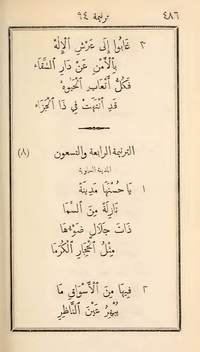 ٤٨٦ ترنيمة ٩٤
٢ غَابُوا إِلَى عَرْشِ ٱلْإِلٰهْ
بِٱلْأَمْنِ عَنْ دَارِ ٱلشَّقَاءْ
فَكُلُّ أَتْعَابِ ٱلْحَيٰوةْ
قَدِ ٱنْتَهَتْ فِي ذَا ٱلْجَزَاءْ
الترنيمة الرابعة والتسعون (٨)
المدينة السماوية
١ يَا حُسْنَهَا مَدِينَةً
نَازِلَةً مِنَ ٱلسَّمَا
ذَاتَ جَلَالٍ ضَوْءُهَا
مِثْلُ ٱلْحِجَارِ ٱلْكُرَمَا
٢ فِيهَا مِنَ ٱلْأَسْوَاقِ مَا
يُبْهِرُ عَيْنَ ٱلنَّاظِرِ